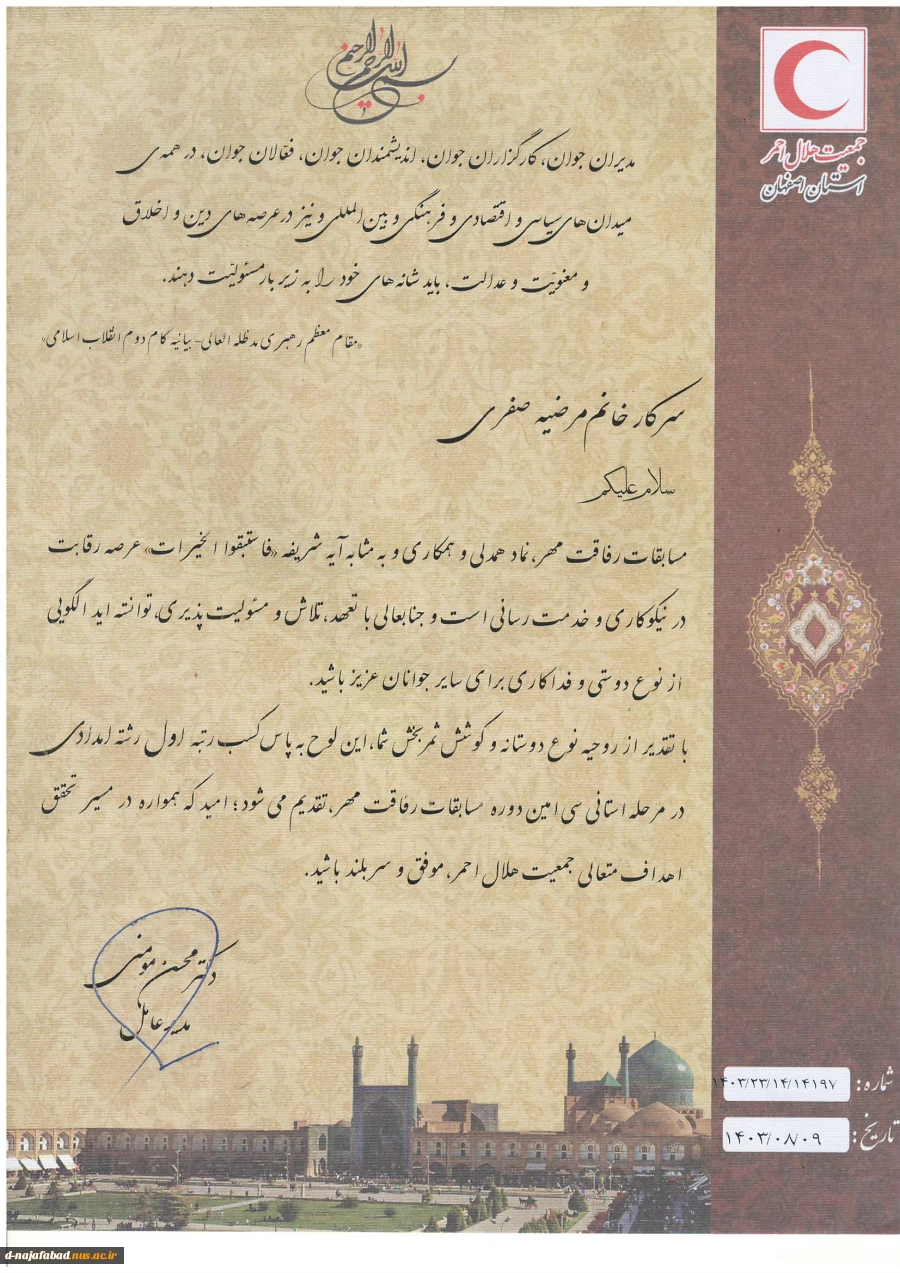 بسم الله الرحمن الرحیم
جمعیت هلال احمر
استان اصفهان
مدیران جوان، کارگزاران جوان، اندیشمندان جوان، فعّالان جوان، در همه‌ی
میدان‌های سیاسی و اقتصادی و فرهنگی و بین‌المللی و نیز در عرصه‌های دین و اخلاق
و معنویّت و عدالت، باید شانه‌های خود را به زیر بار مسئولیّت دهند.
«مقام معظم رهبری مدظله العالی- بیانیه گام دوم انقلاب اسلامی»
سرکار خانم مرضیه صفری
سلام علیکم
مسابقات رفاقت مهر، نماد همدلی و همکاری و به مثابه آیه شریفه «فاستبقوا الخیرات» عرصه رقابت
در نیکوکاری و خدمت رسانی است و جنابعالی با تعهد، تلاش و مسئولیت پذیری، توانسته اید الگویی
از نوع دوستی و فداکاری برای سایر جوانان عزیز باشید.
با تقدیر از روحیه نوع دوستانه و کوشش ثمربخش شما، این لوح به پاس کسب رتبه اول رشته امدادی
در مرحله استانی سی امین دوره مسابقات رفاقت مهر، تقدیم می شود؛ امید که همواره در مسیر تحقق
اهداف متعالی جمعیت هلال احمر، موفق و سربلند باشید.
دکتر محسن مومنی
مدیرعامل
شماره: ۱۴۰۳/۲۳/۱۴/۱۴۱۹۷
تاریخ: ۱۴۰۳/۰۸/۰۹
d-najafabad.nus.ac.ir